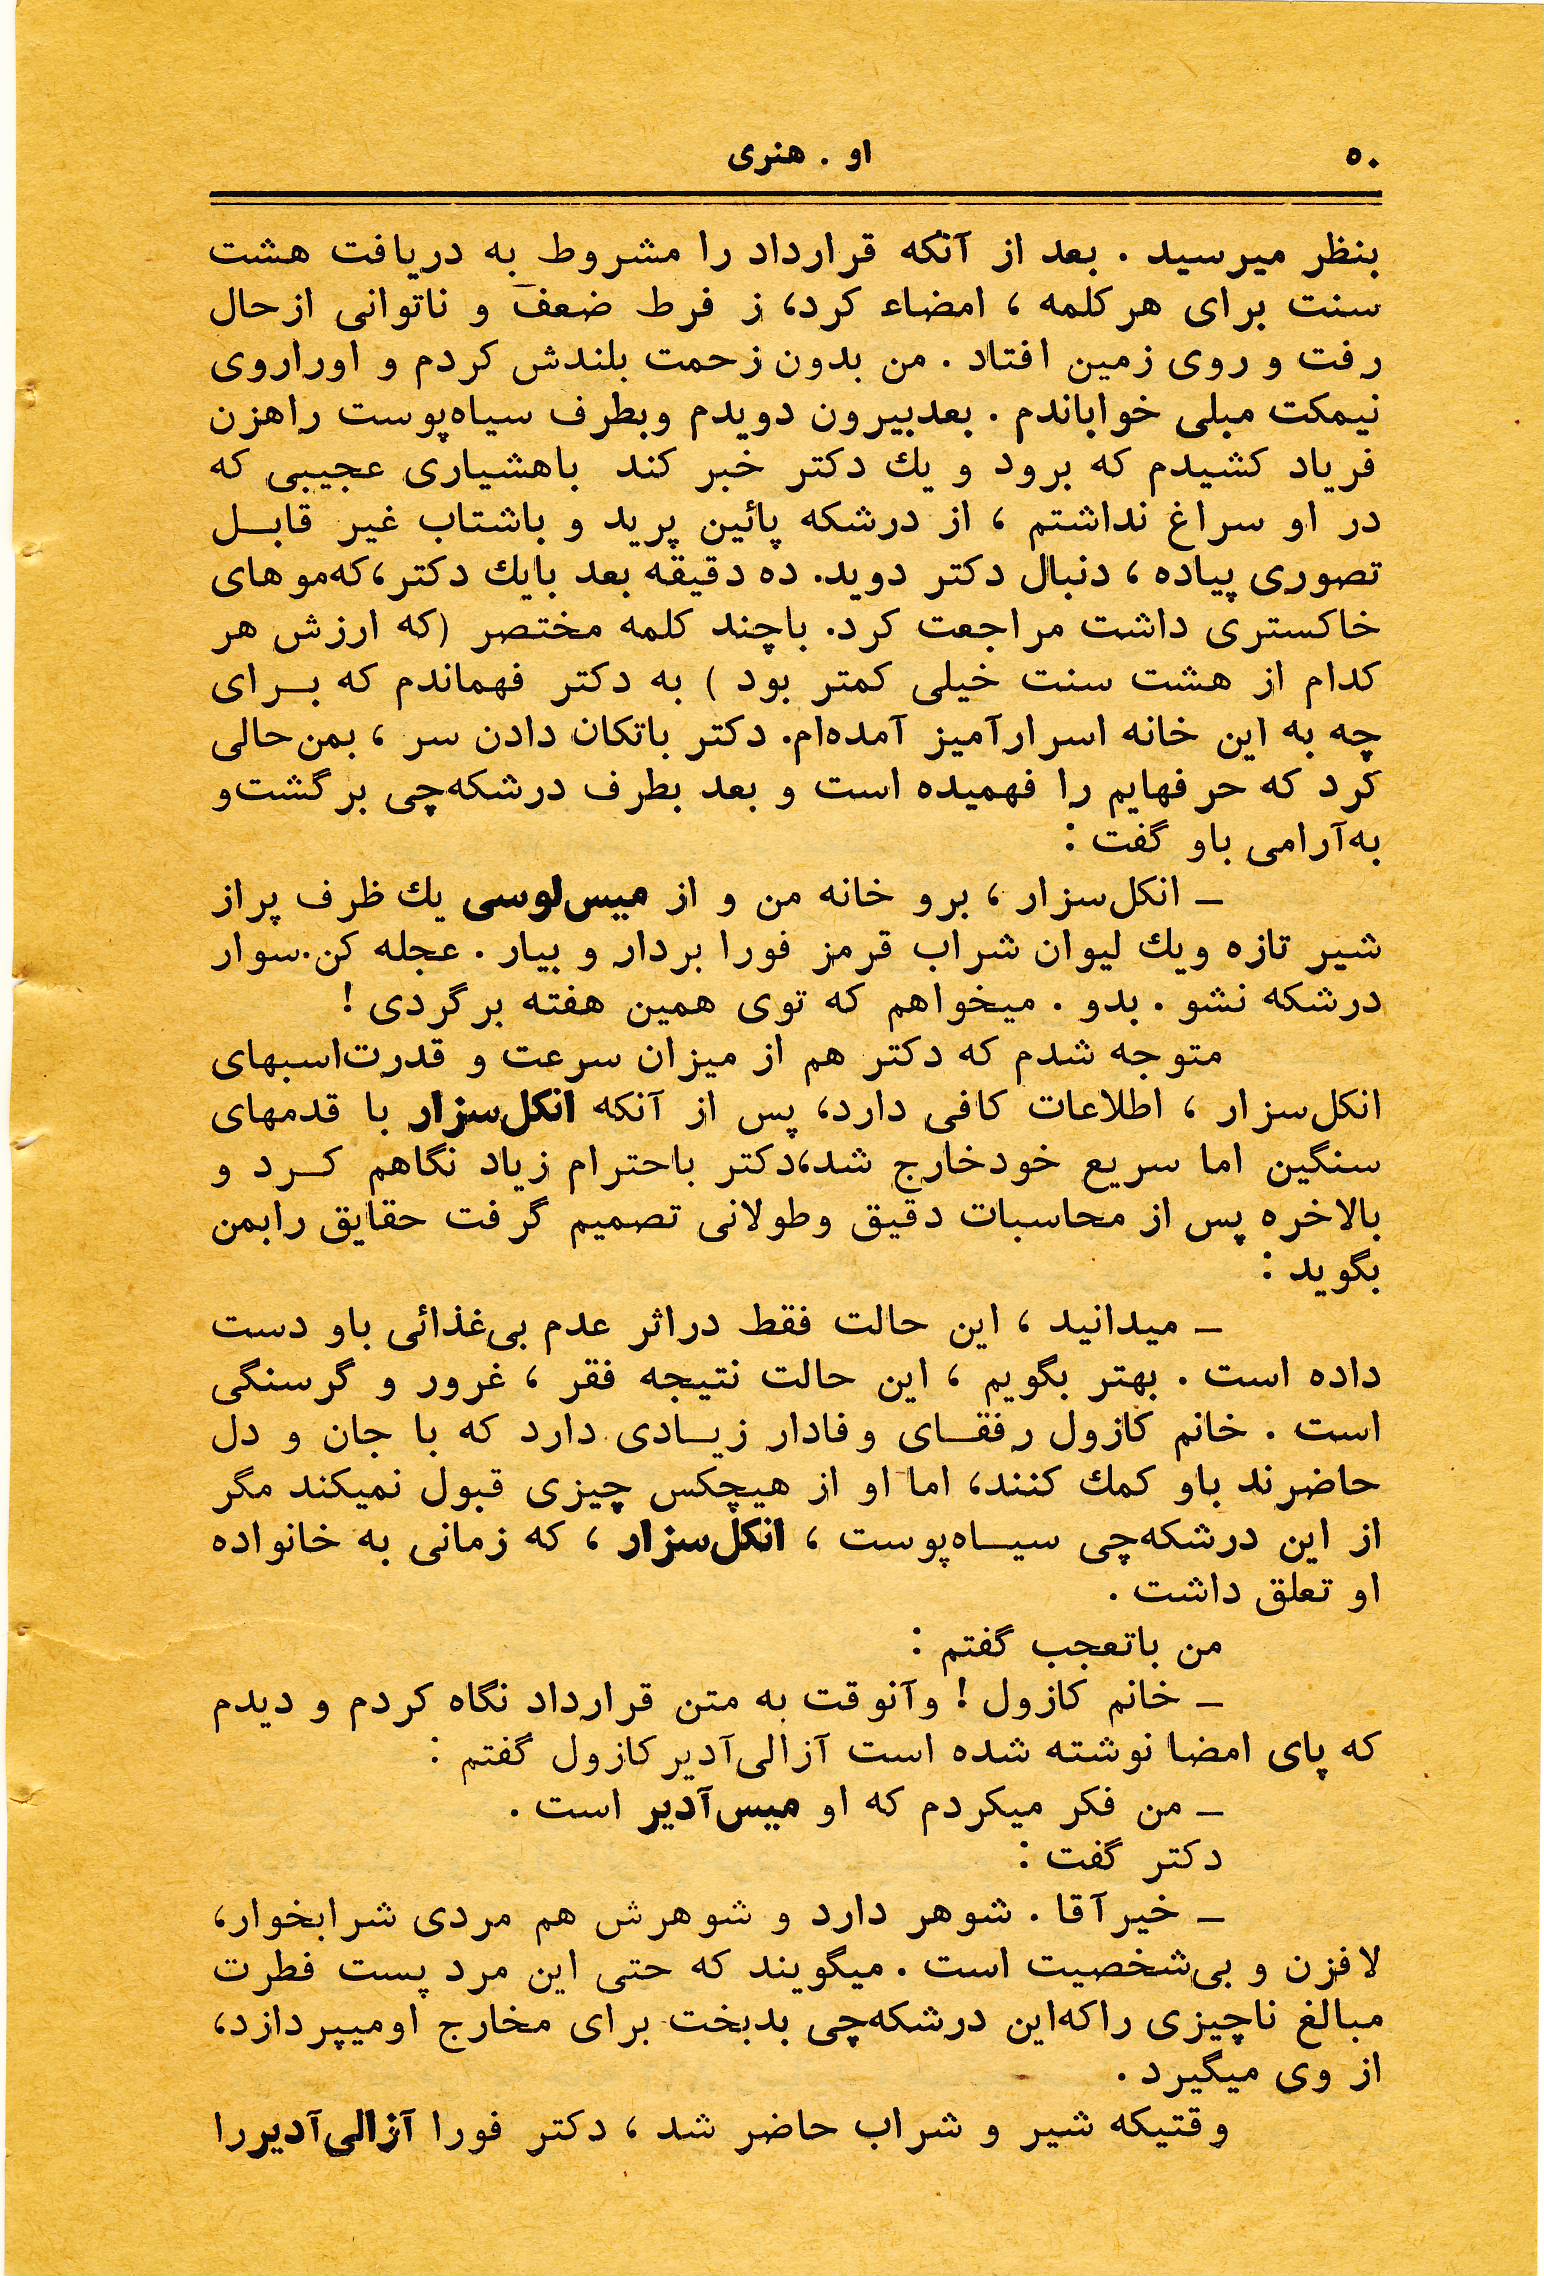 ۵۰
او . هنری
بنظر میرسید . بعد از آنکه قرارداد را مشروط به دریافت هشت
سنت برای هرکلمه ، امضاء کرد، ز فرط ضعف و ناتوانی ازحال
رفت و روی زمین افتاد . من بدون زحمت بلندش کردم و اوراروی
نیمکت مبلی خواباندم . بعدبیرون دویدم وبطرف سیاه‌پوست راهزن
فریاد کشیدم که برود و یك دکتر خبر کند باهشیاری عجیبی که
در او سراغ نداشتم ، از درشکه پائین پرید و باشتاب غیر قابل
تصوری پیاده ، دنبال دکتر دوید. ده دقیقه بعد بایك دکتر،که‌موهای
خاکستری داشت مراجعت کرد. باچند کلمه مختصر (که ارزش هر
کدام از هشت سنت خیلی کمتر بود ) به دکتر فهماندم که برای
چه به این خانه اسرارآمیز آمده‌ام. دکتر باتکان دادن سر ، بمن‌حالی
کرد که حرفهایم را فهمیده است و بعد بطرف درشکه‌چی برگشت‌و
به‌آرامی باو گفت :
ـ انکل‌سزار ، برو خانه من و از میس‌لوسی یك ظرف پراز
شیر تازه ویك لیوان شراب قرمز فورا بردار و بیار . عجله کن.سوار
درشکه نشو . بدو . میخواهم که توی همین هفته برگردی !
متوجه شدم که دکتر هم از میزان سرعت و قدرت‌اسبهای
انکل‌سزار ، اطلاعات کافی دارد، پس از آنکه انکل‌سزار با قدمهای
سنگین اما سریع خودخارج شد،دکتر باحترام زیاد نگاهم کرد و
بالاخره پس از محاسبات دقیق وطولانی تصمیم گرفت حقایق رابمن
بگوید :
ـ میدانید ، این حالت فقط دراثر عدم بی‌غذائی باو دست
داده است . بهتر بگویم ، این حالت نتیجه فقر ، غرور و گرسنگی
است . خانم کازول رفقای وفادار زیادی دارد که با جان و دل
حاضرند باو کمك کنند، اما او از هیچکس چیزی قبول نمیکند مگر
از این درشکه‌چی سیاه‌پوست ، انکل‌سزار ، که زمانی به خانواده
او تعلق داشت .
من باتعجب گفتم :
ـ خانم کازول ! وآنوقت به متن قرارداد نگاه کردم و دیدم
که پای امضا نوشته شده است آزالی‌آدیرکازول گفتم :
ـ من فکر میکردم که او میس‌آدیر است .
دکتر گفت :
ـ خیرآقا . شوهر دارد و شوهرش هم مردی شرابخوار،
لافزن و بی‌شخصیت است . میگویند که حتی این مرد پست فطرت
مبالغ ناچیزی راکه‌این درشکه‌چی بدبخت برای مخارج اومیپردازد،
از وی میگیرد .
وقتیکه شیر و شراب حاضر شد ، دکتر فورا آزالی‌آدیررا